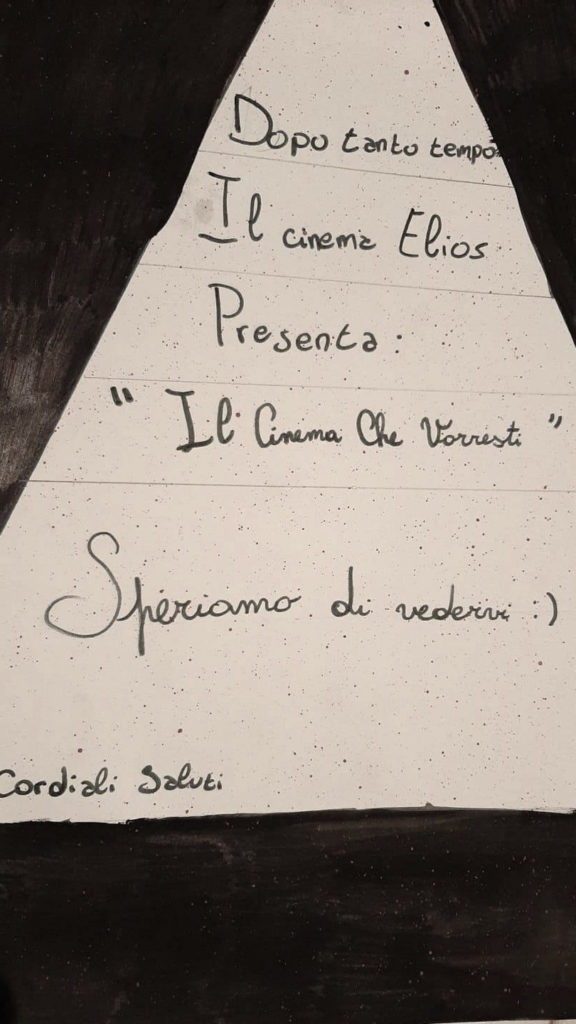 Dopo tanto tempo
Il cinema Elios
Presenta:
" Il Cinema Che Vorresti "
Speriamo di vedervi :)
Cordiali Saluti